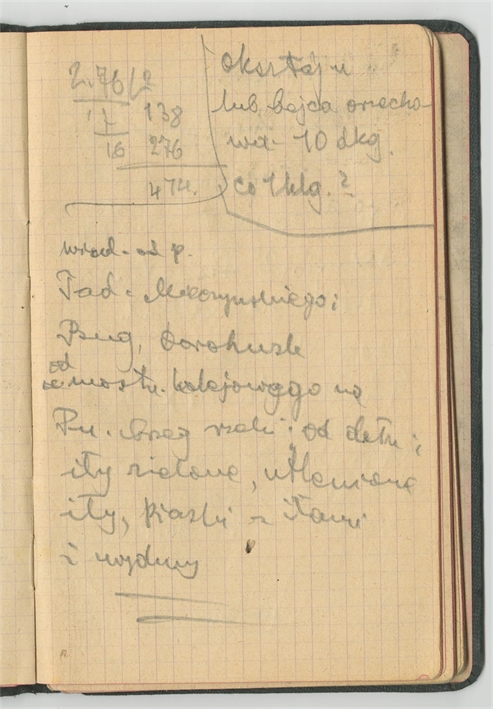 2.76/2
17 138
16 276
474.
lub bejca orzecho-
wa - 10 dkg.
co 1 klg. ?
wiad. od p.
Tad.
Bug, Dorohusk
od mostu kolejowego na
Pn. brzeg rzeki; od dołu;
iły zielone, utlenione
iły, piaski z iłami
i wydmy